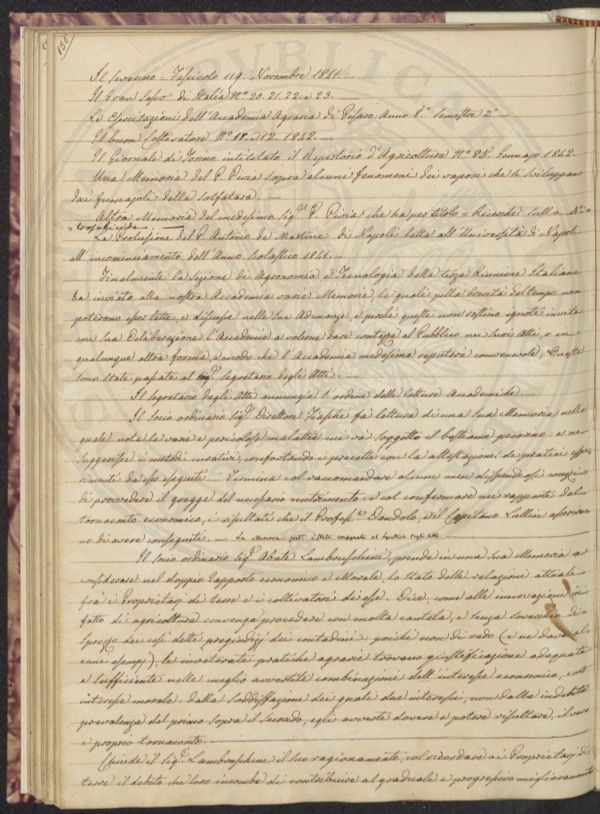 156
Il Severino - Fascicolo 119. Novembre 1841.
Il Gran Sasso di Italia N.º 20. 21. 22. e 23.
Le Esercitazioni dell'Accademia Agraria di Pesaro Anno 8.º Semestre 2.º
Il buon Coltivatore N.º 11. e 12. 1842.
Il Giornale di Torino intitolato il Repertorio d'Agricoltura N.º 85. Gennajo 1842.
Una Memoria del P. Piria sopra alcuni fenomeni dei vapori che si sviluppan
dai fumajoli della solfatara.
Altra Memoria del medesimo Sig.r P. Piria che ha per titolo = Ricerche sull
La Prolusione del P. Antonio de Martino di Napoli letta all'Università di Napoli
all'incominciamento dell'Anno Scolastico 1841.
Finalmente la Sezione di Agronomia e Tecnologia della terza Riunione Italiana
ha inviato alla nostra Accademia varie Memorie, le quali pella brevità del tempo non
poterono esser lette, e discusse nelle sue Adunanze, e perché queste non restino ignote invita
con sua Deliberazione l'Accademia a volerne dare contezza al Pubblico nei suoi Atti, o in
qualunque altra forma, e modo che l'Accademia medesima reputerà convenevole, Queste
sono state passate al Segretario degli Atti.
Il Segretario degli Atti annunzia l'ordine delle letture Accademiche.
Il Socio ordinario Sig.r Direttore fà lettura di una sua Memoria nella
quale nota le varie e pericolose malattie cui va soggetto il bestiame pecorino, e ne
suggerisce i metodi curativi, confortando i precetti con la attestazione de pratici
da esso eseguiti. Termina col raccomandare alcuni men dispendiosi mezzi
di provvedere il gregge del necessario nutrimento e col confermare nei rapporti del
tornaconto economico, i resultati che il Profess.re Dandolo, e il Capitano
no di avere conseguiti.
Il Socio ordinario Sig.r Abate Lambruschini, prende in una sua Memoria a
considerare nel doppio rapporto economico e Morale, lo stato delle relazioni attuali
frà i Proprietarj di terre e i coltivatori di esse. Dice, come alle innovazioni in
fatto di agricoltura convenga procedere con molta cautela, e senza soverchio di-
sprezzo dei così detti pregiudizj dei contadini: poiché non di rado (e ne dava al-
cuni esempj), le inveterate pratiche agrarie trovano giustificazione adeguata
e sufficiente nelle meglio avvertite combinazioni dell'interesse economico, coll'
interesse morale: dalla soddisfazione dei quali due interessi, non dalla indebita
prevalenza del primo sopra il secondo, egli avverte dovere e potere resultare, il vero
e proprio tornaconto.
Chiude il Sig.r Lambruschini il suo ragionamento, col ricordare ai Proprietarj di
terre il debito che loro incombe di contribuire al graduale e progressivo miglioramento